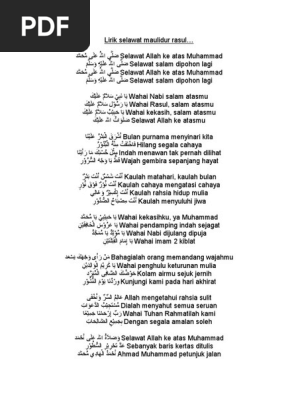 PDF
Lirik selawat maulidur rasul…
صَلَّى اللهُ عَلَى مُحَمَّد Selawat Allah ke atas Muhammad
صَلَّى اللهُ عَلَيْهِ وَسَلَّمْ Selawat salam dipohon lagi
صَلَّى اللهُ عَلَى مُحَمَّد Selawat Allah ke atas Muhammad
صَلَّى اللهُ عَلَيْهِ وَسَلَّمْ Selawat salam dipohon lagi
يَا نَبِيْ سَلاَمٌ عَلَيْكَ Wahai Nabi salam atasmu
يَا رَسُوْل سَلاَمٌ عَلَيْكَ Wahai Rasul, salam atasmu
يَا حَبِيْبُ سَلاَمٌ عَلَيْكَ Wahai kekasih, salam atasmu
صَلَوَاتُ الله عَلَيْكَ Selawat Allah ke atasmu
أَشْرَقَ الْبَدْرُ عَلَيْنَا Bulan purnama menyinari kita
فَاخْتَفَتْ مِنْهُ الْبُدُوْرُ Hilang segala cahaya
مِثْلَ حُسْنِكَ مَا رَأَيْنَا Indah menawan tak pernah dilihat
قَطُّ يَا وَجْهَ السُّرُوْرِ Wajah gembira sepanjang hayat
أَنْتَ شَمْسٌ أَنْتَ بَدْرٌ Kaulah matahari, kaulah bulan
أَنْتَ نُوْرٌ فَوْقَ نُوْرٍ Kaulah cahaya mengatasi cahaya
Kaulah rahsia hidup mulia
أَنْتَ مِصْبَاحُ الصُّدُوْرِ Kaulah menyuluhi jiwa
يَا حَبِيْبِيْ يَا مُحَمَّد Wahai kekasihku, ya Muhammad
يَا عَرُوْسَ الْخَافِقَيْنِ Wahai pendamping indah sejagat
يَا مُؤَيَّدُ يَا مُمَجَّدُ Wahai Nabi dijulang dipuja
يَا إِمَامَ الْقِبْلَتَيْنِ Wahai imam 2 kiblat
مَنْ رَأَى وَجْهَكَ يَسْعَدْ Bahagialah orang memandang wajahmu
يَا كَرِيْمَ الْوَالِدَيْنِ Wahai penghulu keturunan mulia
حَوْضُكَ الصَّافِى الْمُبَرَّدْ Kolam airmu sejuk jernih
وِرْدُنَا يَوْمَ النُّشُوْرِ Kunjungi kami pada hari akhirat
عَالِمُ السِّرِّ وَأَخْفَى Allah mengetahui rahsia sulit
مُسْتَجِيْبُ الدَّعَوَاتِ Dialah menyahut semua seruan
رَبِّ ارْحَمْنَا جَمِيْعًا Wahai Tuhan Rahmatilah kami
بِجَمِيْعِ الصَّالِحَاتِ Dengan segala amalan soleh
وَصَلاَةُ اللهِ عَلَى أَحْمَد Selawat Allah ke atas Muhammad
عَدَّ تَحْرِيْرِ السُّطُوْرِ Sebanyak baris kertas ditulis
أَحْمَدُ الْهَادِيْ مُحَمَّد Ahmad Muhammad petunjuk jalan